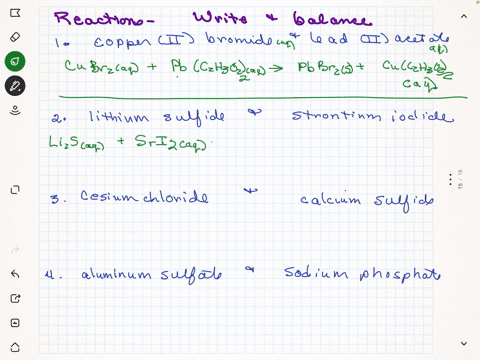 Reactions- Write & balance
1. copper (II) bromide(aq) & lead (II) acetate (aq)
CuBr2(aq) + Pb(C2H3O2)2(aq) → PbBr2(s) + Cu(C2H3O2)2
(aq)
2. lithium sulfide & strontium iodide
Li2S(aq) + SrI2(aq)
3. cesium chloride & calcium sulfide
4. aluminum sulfate & sodium phosphate
15 / 16